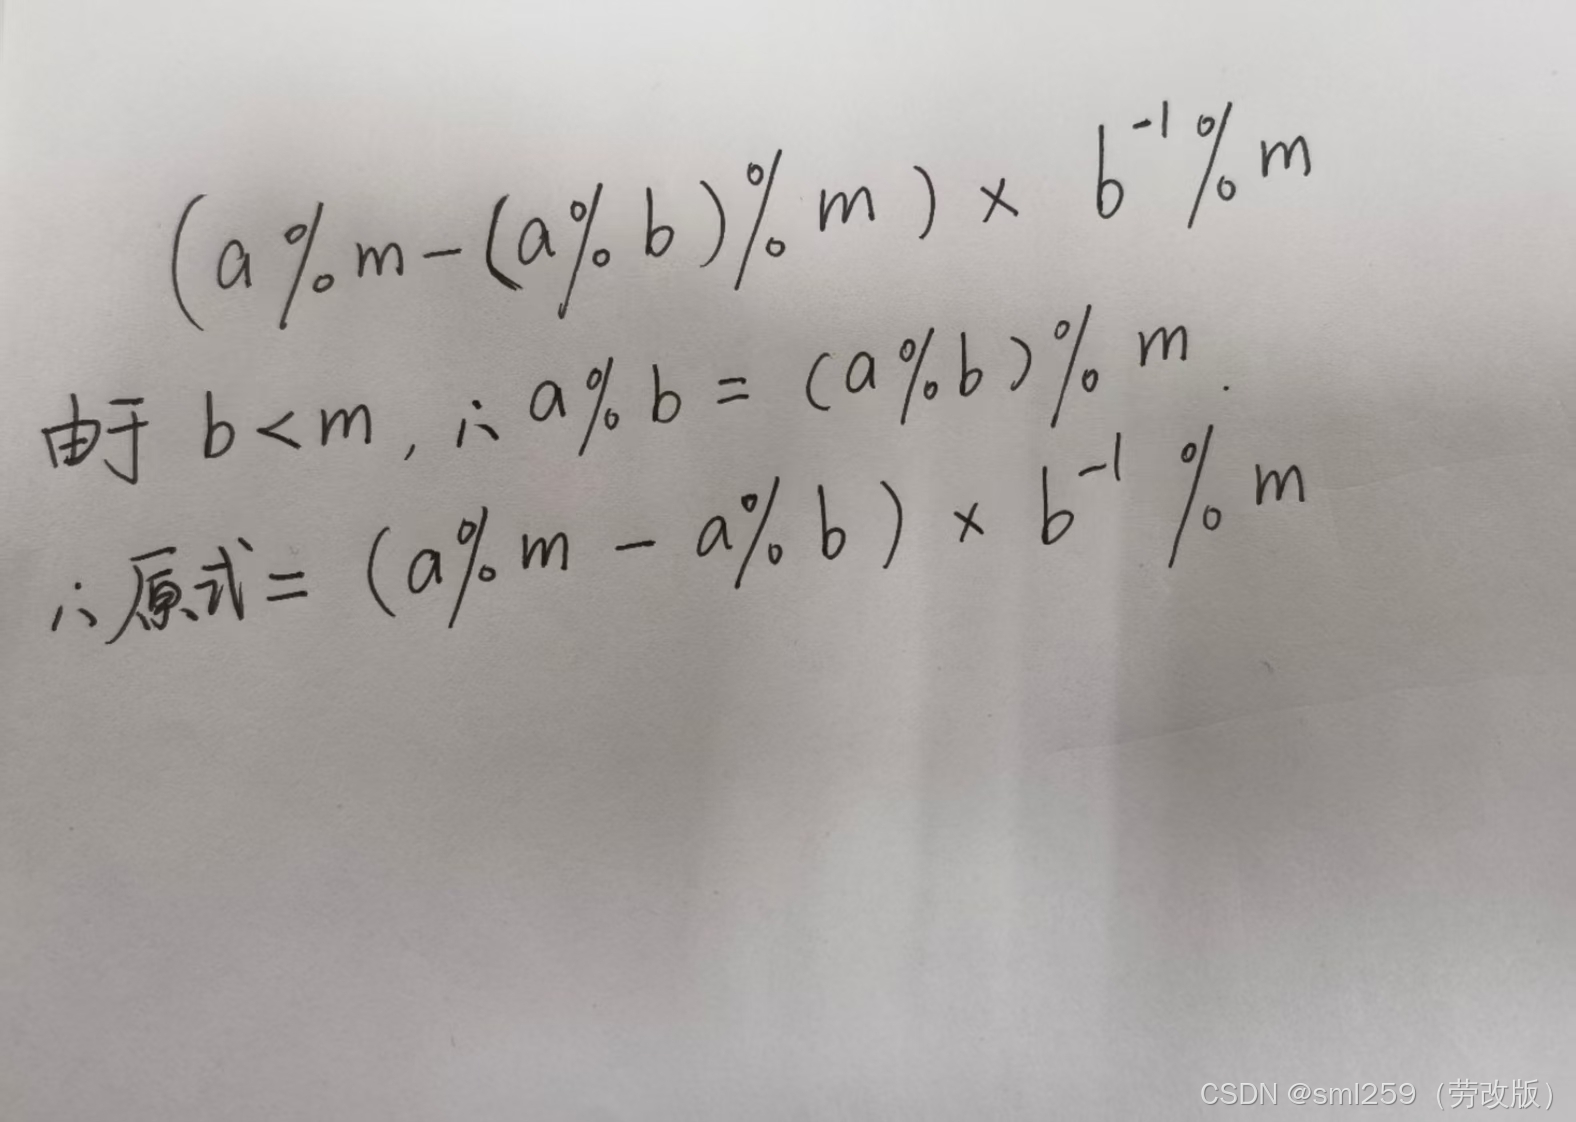 (a%m-(a%b)%m)×b⁻¹%m
由于 b<m, ∴a%b=(a%b)%m.
∴原式=(a%m-a%b)×b⁻¹%m
CSDN @sml259（劳改版）